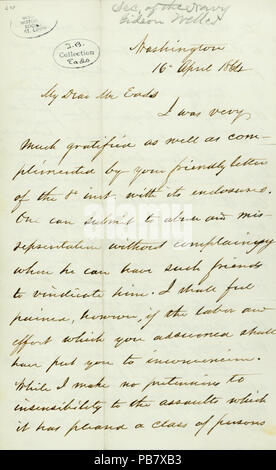 Sec. of the Navy
Gideon Welles
J.B.
Collection
Eads
Washington
16 April 1864
My Dear Mr Eads
I was very
much gratified as well as com-
plimented by your friendly letter
of the 8 inst. with its enclosures.
One can submit to abuse and mis
representation without complaining
when he can have such friends
to vindicate him. I shall feel
pained, however, if the labor and
effort which you assumed shall
have put you to inconvenience.
While I make no pretensions to
insensibility to the assaults which
it has pleased a class of persons
alamy
alamy stock photo
PB7XB3